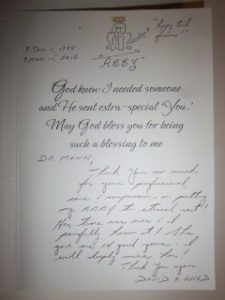 "happy tails
forever"!
9 Jan., 1998
9 Mar., 2012
"ABBY"
God knew I needed someone
and He sent extra-special 'You.'
May God bless you for being
such a blessing to me
DR. MANN,
Thank you so much
for your professional
care & compassion in putting
my ABBY to eternal rest!
Her time was over - I
painfully knew it! She
gave me 14 good years - I
will deeply miss her!
Thank you again,
DAVID